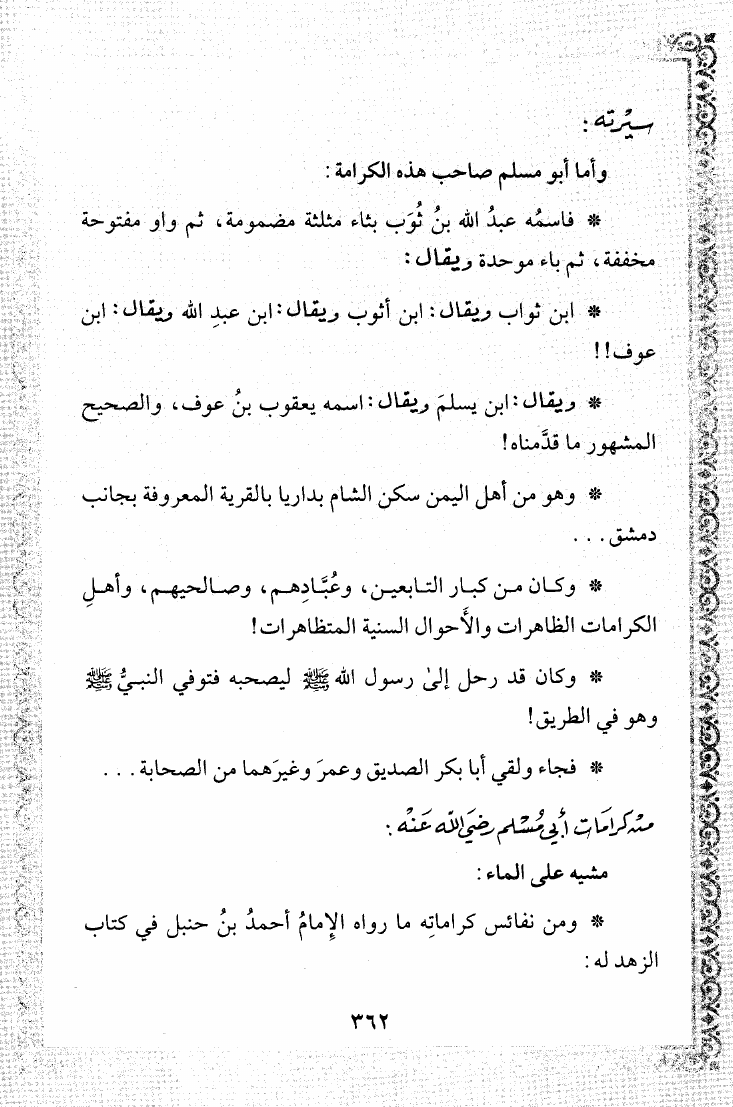 سِيْرته :
وأما أبو مسلم صاحب هذه الكرامة :
* فاسمُه عبدُ الله بنُ ثُوَب بثاء مثلثة مضمومة، ثم واو مفتوحة
مخففة، ثم باء موحدة ويقال :
* ابن ثواب ويقال : ابن أثوب ويقال : ابن عبدِ الله ويقال : ابن
عوف !!
* ويقال : ابن يسلمَ ويقال : اسمه يعقوب بنُ عوف، والصحيح
المشهور ما قدَّمناه !
* وهو من أهل اليمن سكن الشام بداريا بالقرية المعروفة بجانب
دمشق . . .
* وكـان مـن كبـار التـابعيـن، وعُبَّـادِهـم، وصـالحيهـم، وأهـلِ
الكرامات الظاهرات والأَحوال السنية المتظاهرات !
* وكان قد رحل إلىٰ رسول الله ﷺ ليصحبه فتوفي النبـيُّ ﷺ
وهو في الطريق !
* فجاء ولقي أبا بكر الصديق وعمرَ وغيرَهما من الصحابة . . .
من كرَامَات أَبي مُسْلم رضيَ اللَّه عَنْه :
مشيه على الماء :
* ومن نفائس كراماتِه ما رواه الإِمامُ أحمدُ بنُ حنبل في كتاب
الزهد له :
٣٦٢